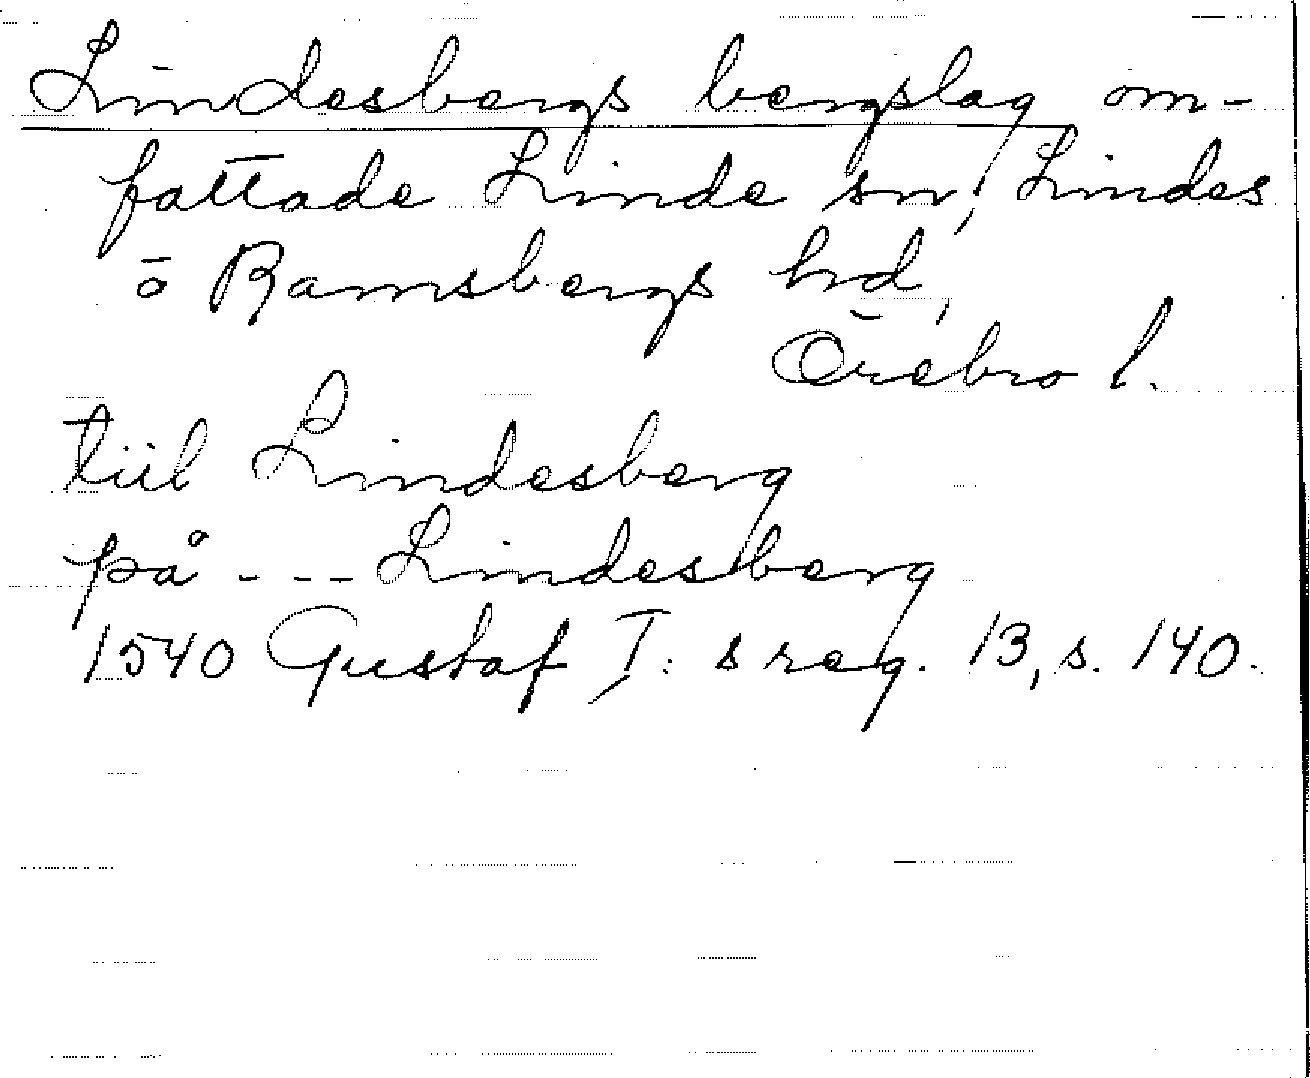 Lindesbergs bergslag om-
fattade Linde sn, Lindes
o Ramsbergs hd,
Örebro l.
tiil Lindesberg
på --- Lindesberg
1540 Gustaf I:s reg. 13, s. 140.